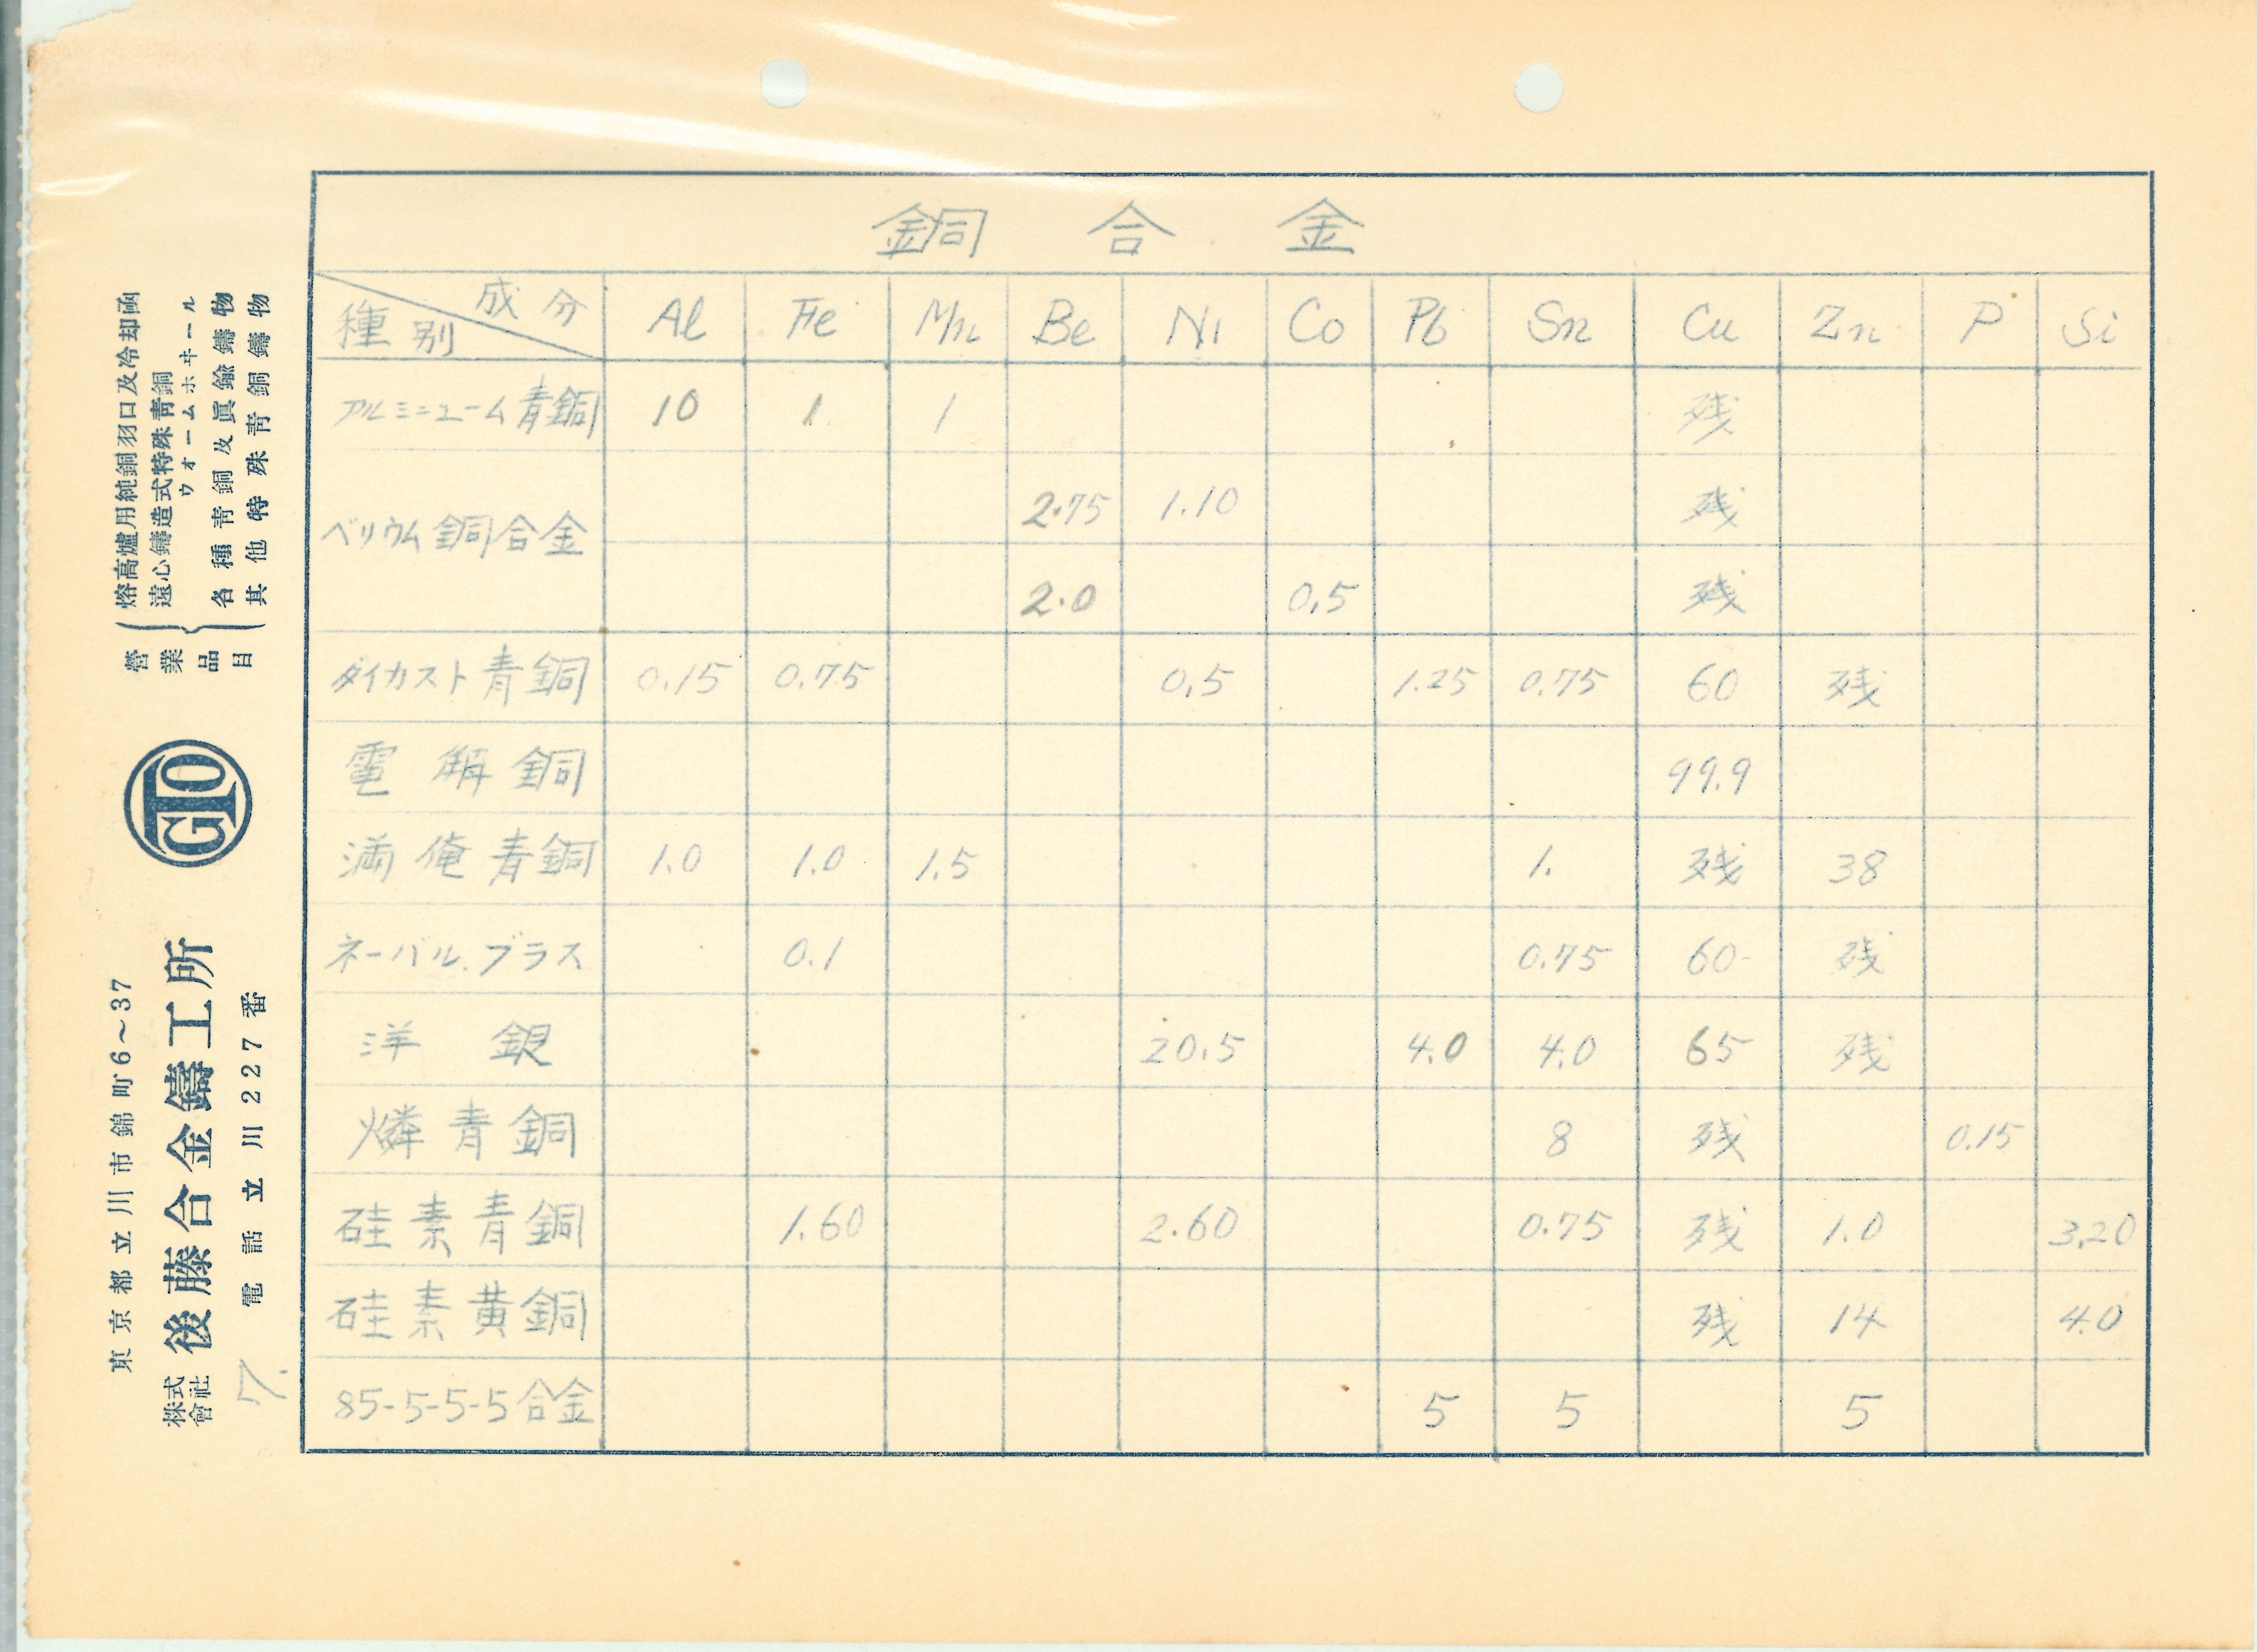 銅合金
種別 成分 Al Fe Mn Be Ni Co Pb Sn Cu Zn P Si
アルミニューム青銅 10 1 1 残
ベリウム銅合金 2.75 1.10 残
2.0 0.5 残
ダイカスト青銅 0.15 0.75 0.5 1.25 0.75 60 残
電解銅 99.9
満俺青銅 1.0 1.0 1.5 1. 残 38
ネーバル.ブラス 0.1 0.75 60 残
洋銀 20.5 4.0 4.0 65 残
燐青銅 8 残 0.15
硅素青銅 1.60 2.60 0.75 残 1.0 3.20
硅素黄銅 残 14 4.0
85-5-5-5合金 5 5 5
東京都立川市錦町6～37
株式會社 後藤合金鑄工所
電話立川2227番
GTO
營業品目
熔高爐用純銅羽口及冷却函
遠心鑄造式特殊靑銅
ウォームホヰール
各種靑銅及眞鍮鑄物
其他特殊靑銅鑄物
7.